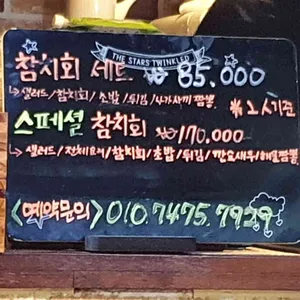 THE STARS TWINKLED
참치회 세트 ₩ 85.000
↳샐러드/참치회/초밥/튀김/사가사끼짬뽕
*2人기준
스페셜 참치회 ₩170.000
↳샐러드/전체요리/참치회/초밥/튀김/깐요새우/해물짬뽕
<예약문의> 010.7475.7929